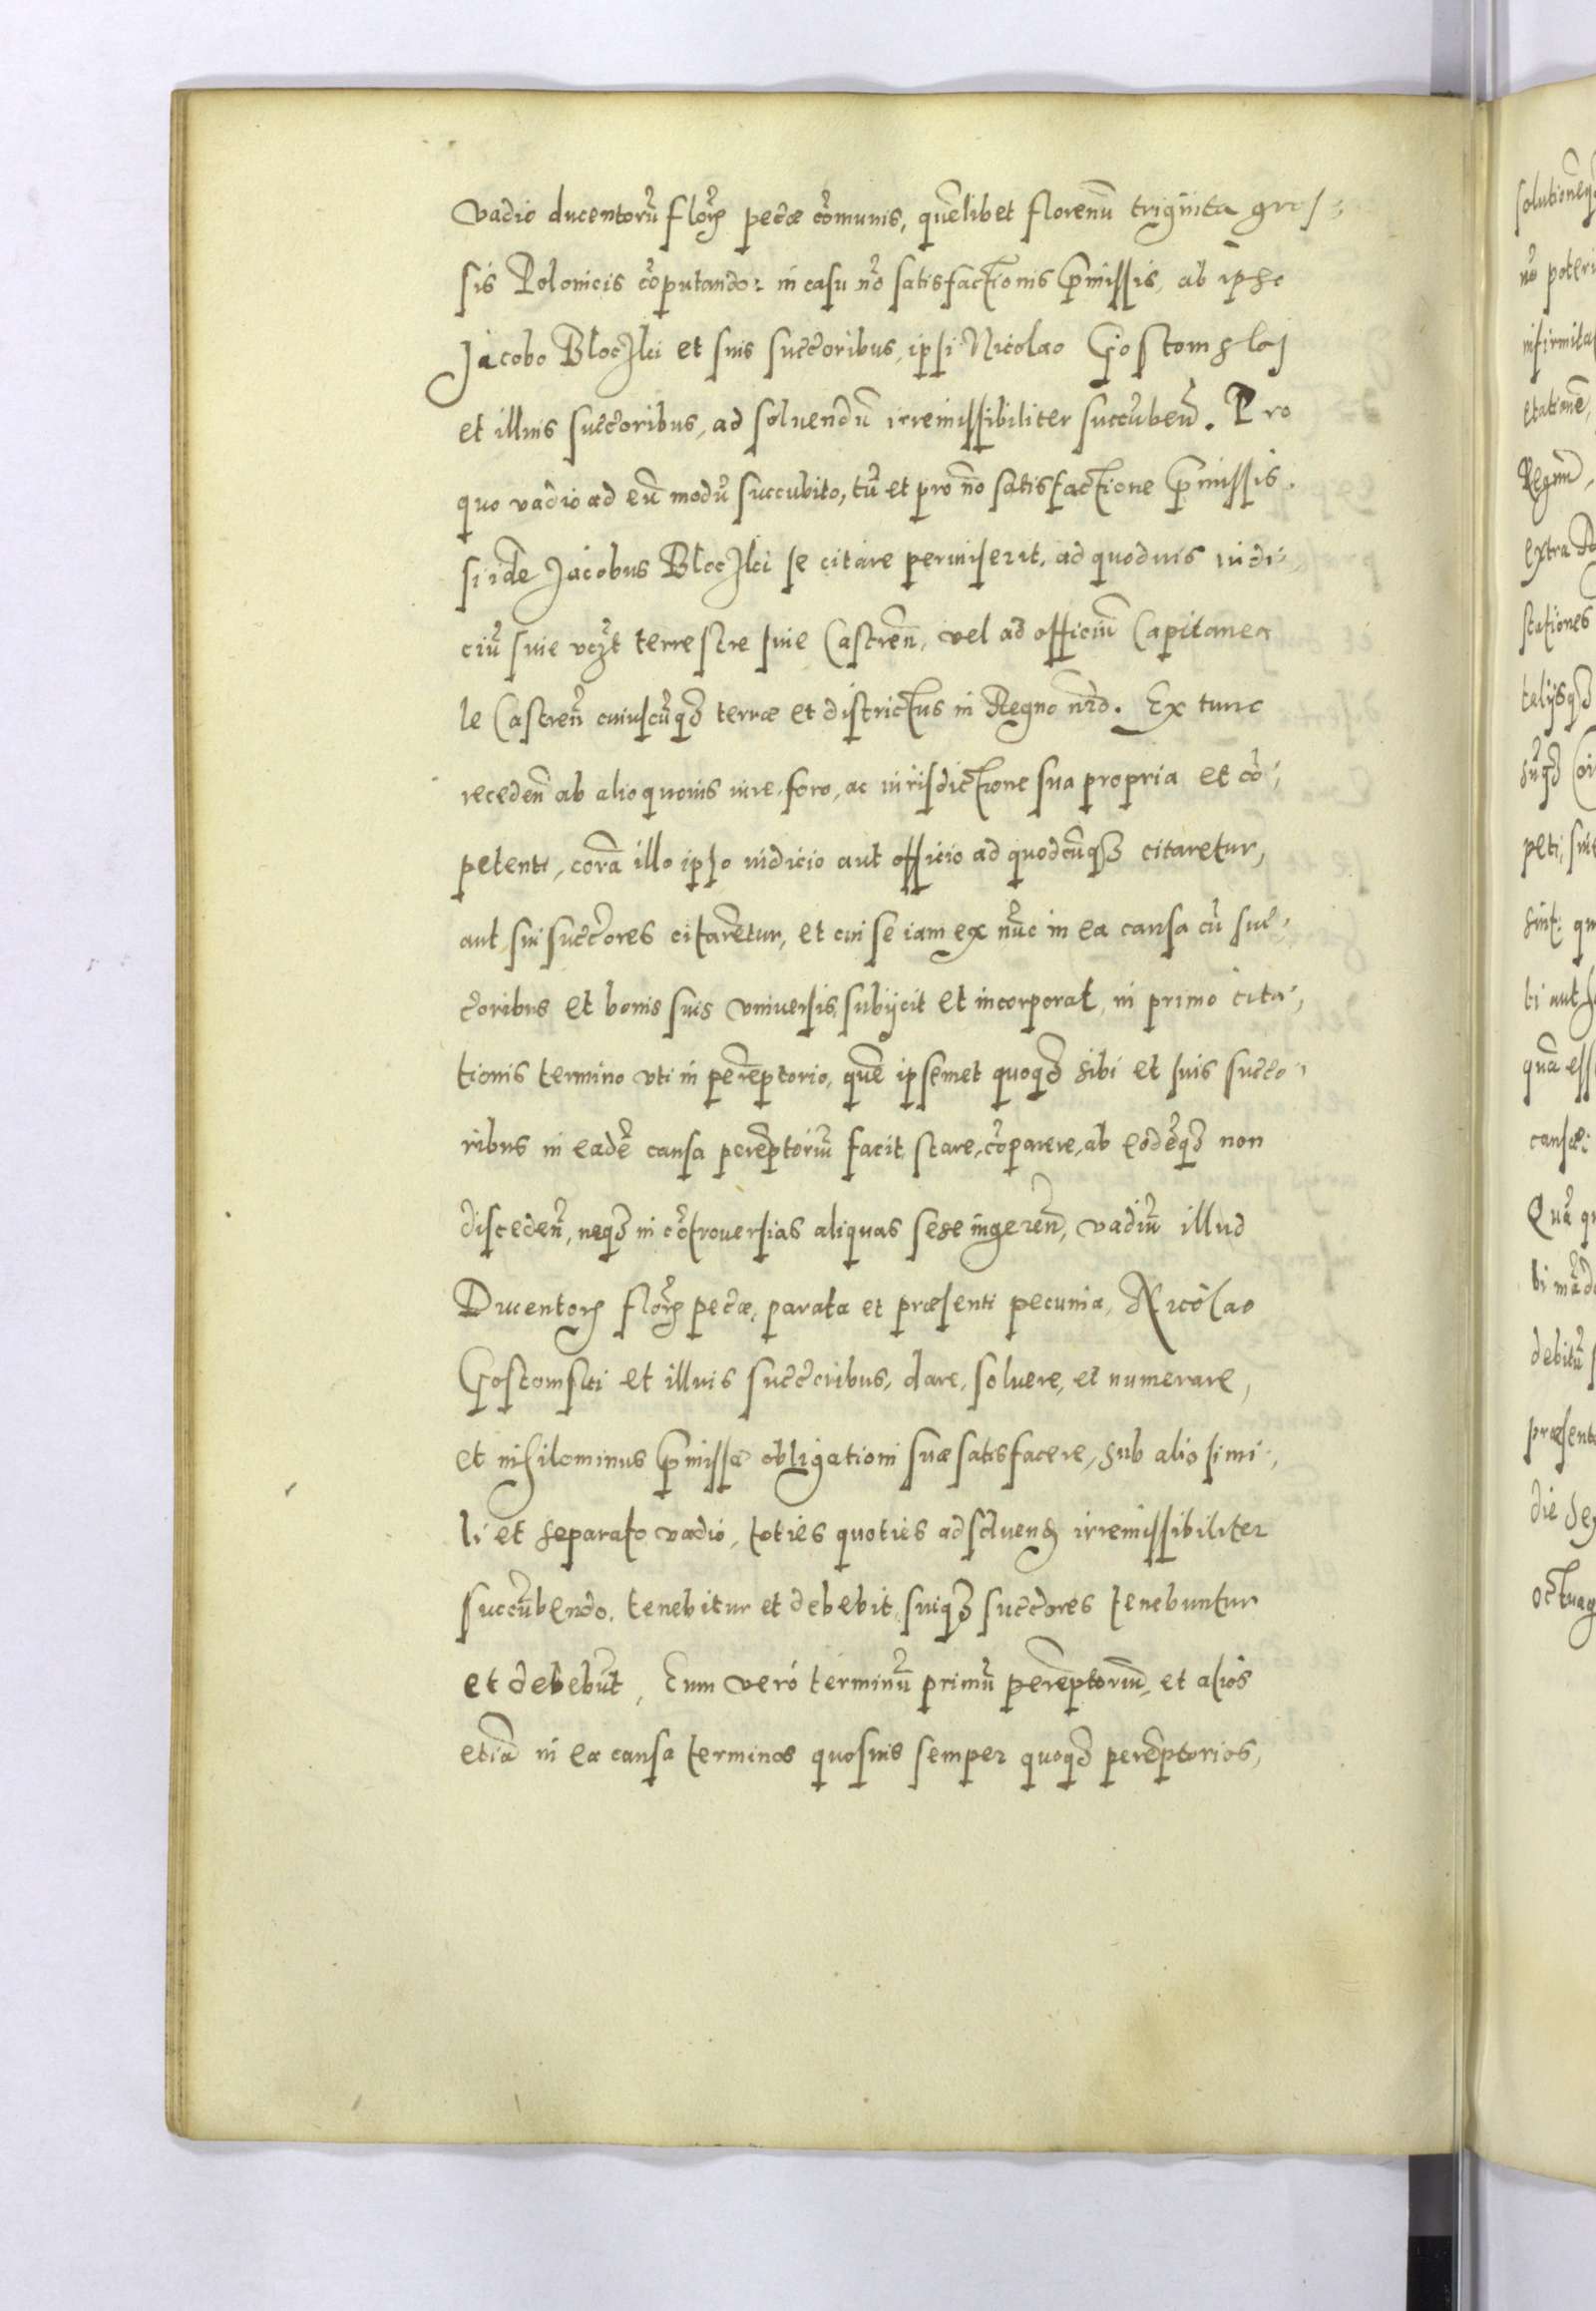 vadio ducentorũ florꝝ pecūae cõmunis, quẽlibet florenũ trigĩnta gros⸗
sis Polonicis cõputando: in casu nõ satisfactionis p̄missis, ab ipso
Jacobo et suis succ̃oribus, ipsi Nicolao Gostomskj
et illius succ̃oribus, ad soluendũ irremissibiliter succũbeñ. Pro
quo vadio ad eũ modũ succubito, tũ et pro nõ satisfactione p̄missis.
si idẽ Jacobus se citare permiserit, ad quoduis iudi⸗
ciũ siue vczt terrestre siue Castreñ, vel ad officiũ Capitanea
le Castreñ cuiuscũqꝫ terrae et districtus in Regno nr̃o. Ex tunc
recedeñ ab alio quouis iure, foro, ac iurisdictione sua propria et cõ⸗
petenti, corã illo ipso iudicio aut officio ad quodcũqꝫ citaretur,
aut sui succ̃ores citarẽtur, et cui se iam ex nũc in ea causa cũ suc̃⸗
c̃oribus et bonis suis vniuersis, subijcit et incorporat, in primo cita⸗
tionis termino vti in perẽptorio, quẽ ipsemet quoqꝫ sibi et suis succ̃o⸗
ribus in eadẽ causa perẽptoriũ facit, stare, cõparere, ab eodẽqꝫ non
discedeñ, neqꝫ in cõtrouersias aliquas sese ingereñ, vadiũ illud
Ducentorꝝ florꝝ pecūae, parata et praesenti pecunia, Nicolao
Gostomski et illius succ̃oribus, dare, soluere, et numerare,
et nihilominus p̄missae obligationi suae satisfacere, sub alio simi⸗
li et separato vadio, toties quoties ad soluenꝭ irremissibiliter
succũbendo, tenebitur et debebit, suiqꝫ succ̃ores tenebuntur
et debebũt, Eum verò terminũ primũ perẽptoriũ, et alios
etiã in ea causa terminos quosuis semper quoqꝫ perẽptorios,
solutionẽqꝫ
nõ poteri
infirmita
etationẽ,
Regnũ,
extra
stationes
telijsqꝫ
peti, siue
sint: qu
ti aut
quã ess
causae:
Quã qu
debitũ
praesent
die
octuag